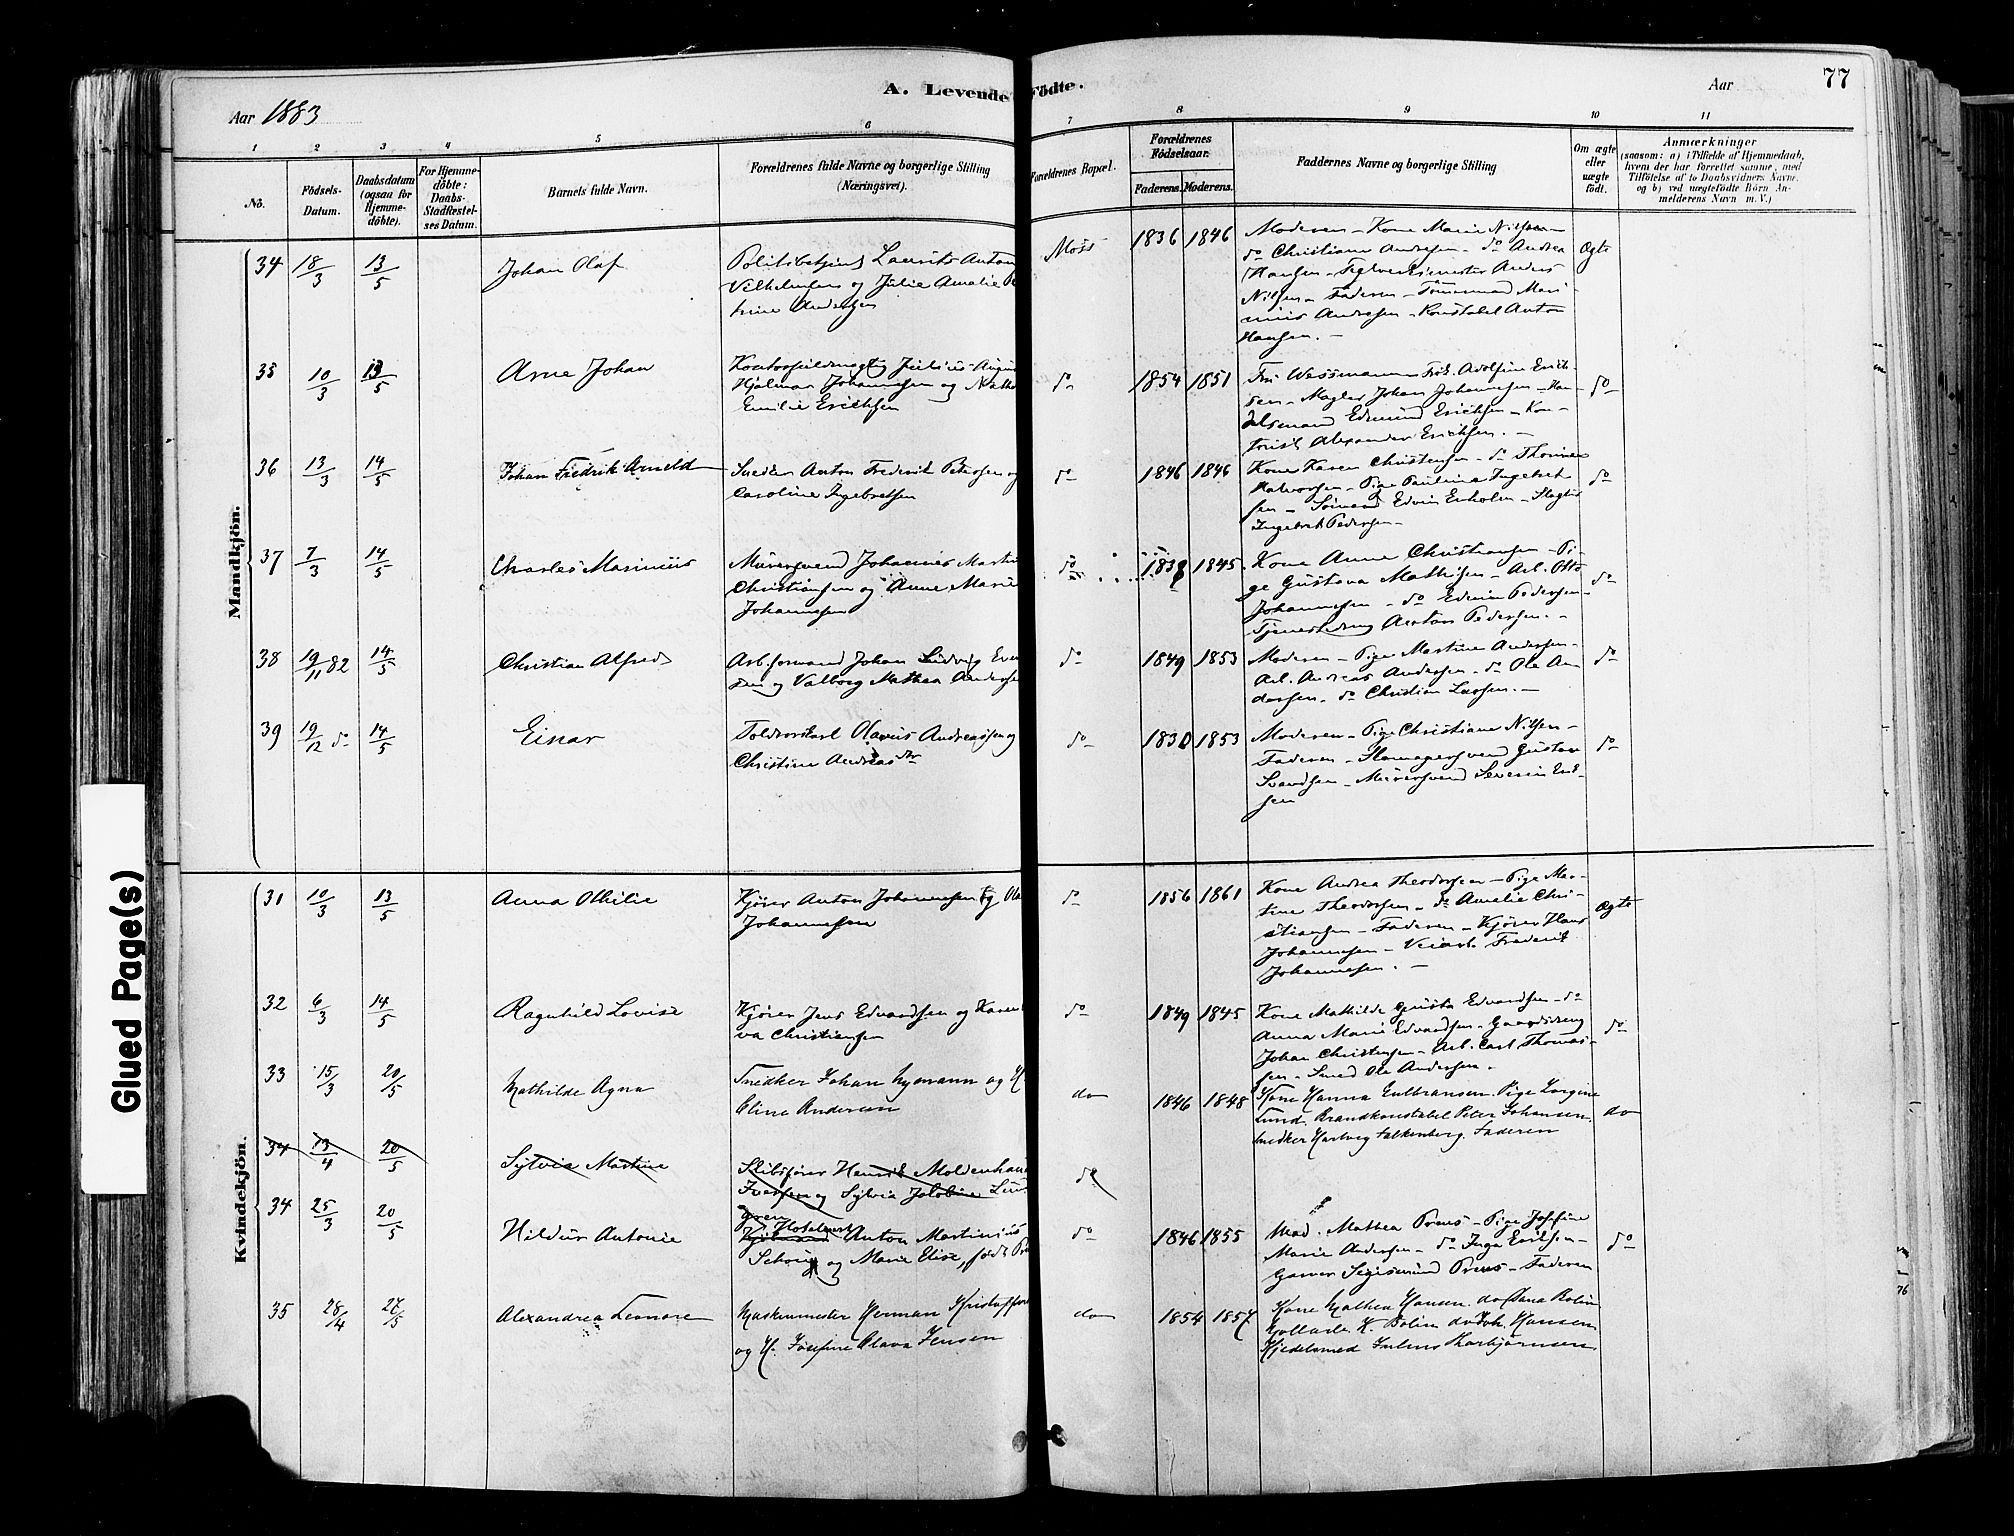 Aar 1883
A. Levende Födte.
Aar 77
1 2 3 4 5 6 7 8 9 10 11
No.
Födsels-Datum.
Daabsdatum (ogsaa for Hjemme-döbte).
For Hjemme-döbte: Daabs-Stadfæstel-ses Datum.
Barnets fulde Navn.
Forældrenes fulde Navne og borgerlige Stilling
(Næringsvei).
Forældrenes Bopæl.
Forældrenes Födselsaar.
Faderens. Moderens.
Faddernes Navne og borgerlige Stilling
Om ægte eller uægte födt.
Anmærkninger
(saasom: a) i Tilfælde af Hjemmedaab,
hvem der har forrettet samme, med
Tilföielse af to Daabsvidners Navne.
og b) ved uægtefödte Börn An-
melderens Navn m. V.)
Mandkjön.
34 18/3 13/5 Johan Olaf
Politibetjent Laurits Anton
Vilhelmsen og Julie Amalie
trine Andersen
Moss 1836 1846
Moderen - Kone Marie Nilsen
do Christiane Andersen - do Andrea
Hansen - Teglværksmester Anders
Nilsen - Faderen - Tömmermand Mari-
nius Andersen - Konstabel Anton
Hansen. -
Ægte
35 10/3 13/5 Arne Johan
Kontorfuldmægtig Julius August
Hjalmar Johannesen og
Emilie Erichsen
do 1854 1851
Fru Wessmann - Frk. Adolfine Erich-
sen - Mægler Johan Johannesen - Han-
delsmand Edmund Erichsen - Kon-
torist Alexander Erichsen. -
do
36 13/3 14/5 Johan Fredrik Arneld
Snedker Anton Frederik Petersen og
Caroline Ingebretsen
do 1846 1846
Kone Karen Christensen - do Thorine
Halvorsen - Pige Pauline Ingebret-
sen - Sömand Edvin Enholm - Slagter
Ingebret Pedersen -
do
37 7/3 14/5 Charles Marinius
Murersvend Johannes Martin
Christiansen og Anne Marie
Johannesen
do 1838 1845
Kone Anna Christiansen - Pi-
ge Gustava Mathisen - Arb. Otto
Johannesen - do Edvin Pedersen -
Tjenestedreng Anton Pedersen. -
do
38 19/11 82 14/5 Christian Alfred
Arb.formand Johan Ludvig
sen og Valborg Mathea Andersen
do 1849 1853
Moderen - Pige Martine Andersen -
Arb. Andreas Andersen - do Ole An-
dersen - do Christian Larsen. -
do
39 19/12 do 14/5 Einar
Toldroerskarl Olavus Andreassen og
Christine Andreasdtr
do 1830 1853
Moderen - Pige Christiane Nilsen -
Faderen - Skomagersvend Gustav
Svendsen - Murersvend Severin Erik-
sen
do
Kvindekjön.
31 10/3 13/5 Anna Othilie
Kjörer Anton Johannesen og
Johannesen
do 1856 1861
Kone Andrea Theodorsen - Pige Mar-
tine Theodorsen - do Amalie Chri-
stiansen - Faderen - Kjörer Hans
Johannesen - Veiarb. Frederik
Johannesen. -
Ægte
32 6/3 14/5 Ragnhild Lovise
Kjörer Jens Edvardsen og Karen
va Christiansen
do 1849 1845
Kone Mathilde Gusta Edvardsen - do
Anna Marie Edvardsen - Gaardsdreng
Johan Christensen - Arb. Carl Thomas-
sen - Smed Ole Andersen. -
do
33 15/3 20/5 Mathilde Agna
Snedker Johan Nymann og H.
Eline Andersen
do 1846 1848
Kone Hanna Gulbransen. Pige Lorgine
Lund. Brandkonstabel Peter Johansen
Snedker Hartvig Falkenberg. Faderen
do
34 13/4 20/5 Sylvia Martine
Skibsförer Henrik Moldenhau
Iversen og Sylvia Jakobine
gren
do
34 25/3 20/5 Hildur Antonie
Hotelvært
Anton Martinius
og Marie Elise, födt
do 1846 1855
Mad. Mathea Preus - Pige Josefine
Marie Andersen - do Inga Eriksen -
Garver Segismund Preus - Faderen
do
35 28/4 27/5 Alexandrea Leonore
Maskinmester Herman Kristoffer
og H. Josefine Olava Jensen
do 1854 1857
Kone Mathea Hansen. do Dana Bolin
K. Bolin do Joh. Hansen
Kjedelsmed Julius Thorbjörnsen
Glued Page(s)